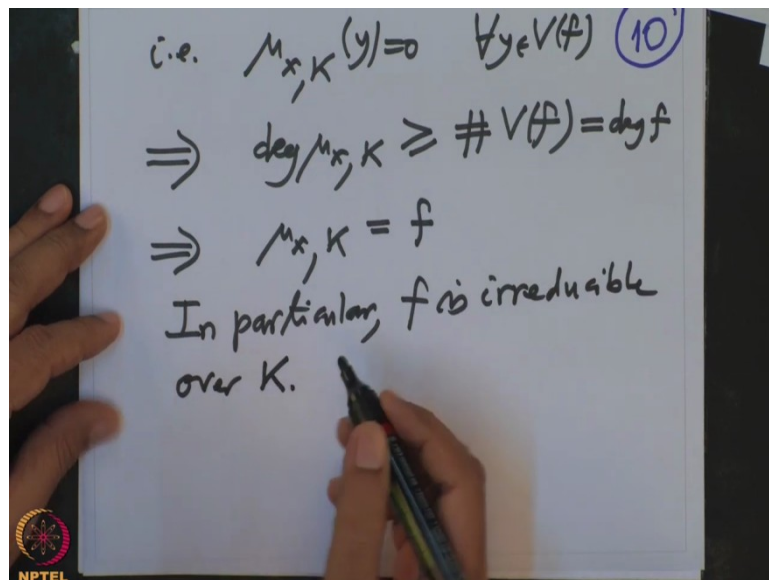 i.e. μ_{x,K}(y)=0 ∀y∈V(f) 10
⇒ deg μ_{x,K} ≥ # V(f) = deg f
⇒ μ_{x,K} = f
In particular, f is irreducible
over K.
NPTEL